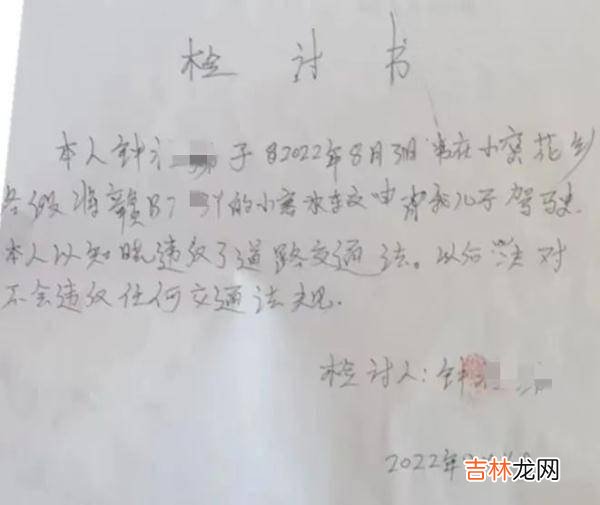 检讨书
本人钟 于2022年8月3日 在小密花乡
将赣B7 的小客车交由 我儿子驾驶
本人以知晓违反了道路交通法。以后决对
不会违反任何交通法规.
检讨人:钟
2022年
吉林龙网